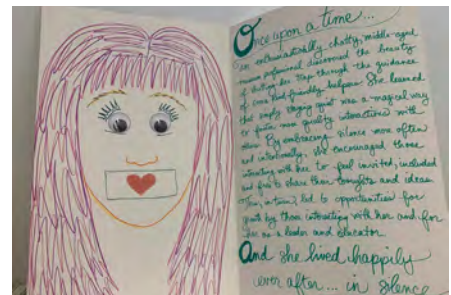 Once upon a time...
an enthusiastically chatty, middle-aged
human professional discovered the beauty
of shutting her trap through the guidance
of some kind, friendly helpers. She learned
that simply staying quiet was a magical way
to foster more quality interactions with
others. By embracing silence more often
and intentionally, she encouraged those
interacting with her to feel invited, included
and free to share their thoughts and ideas.
This, in turn, led to opportunities for
growth by those interacting with her and for
her as a leader and educator.
And she lived happily
ever after... in silence